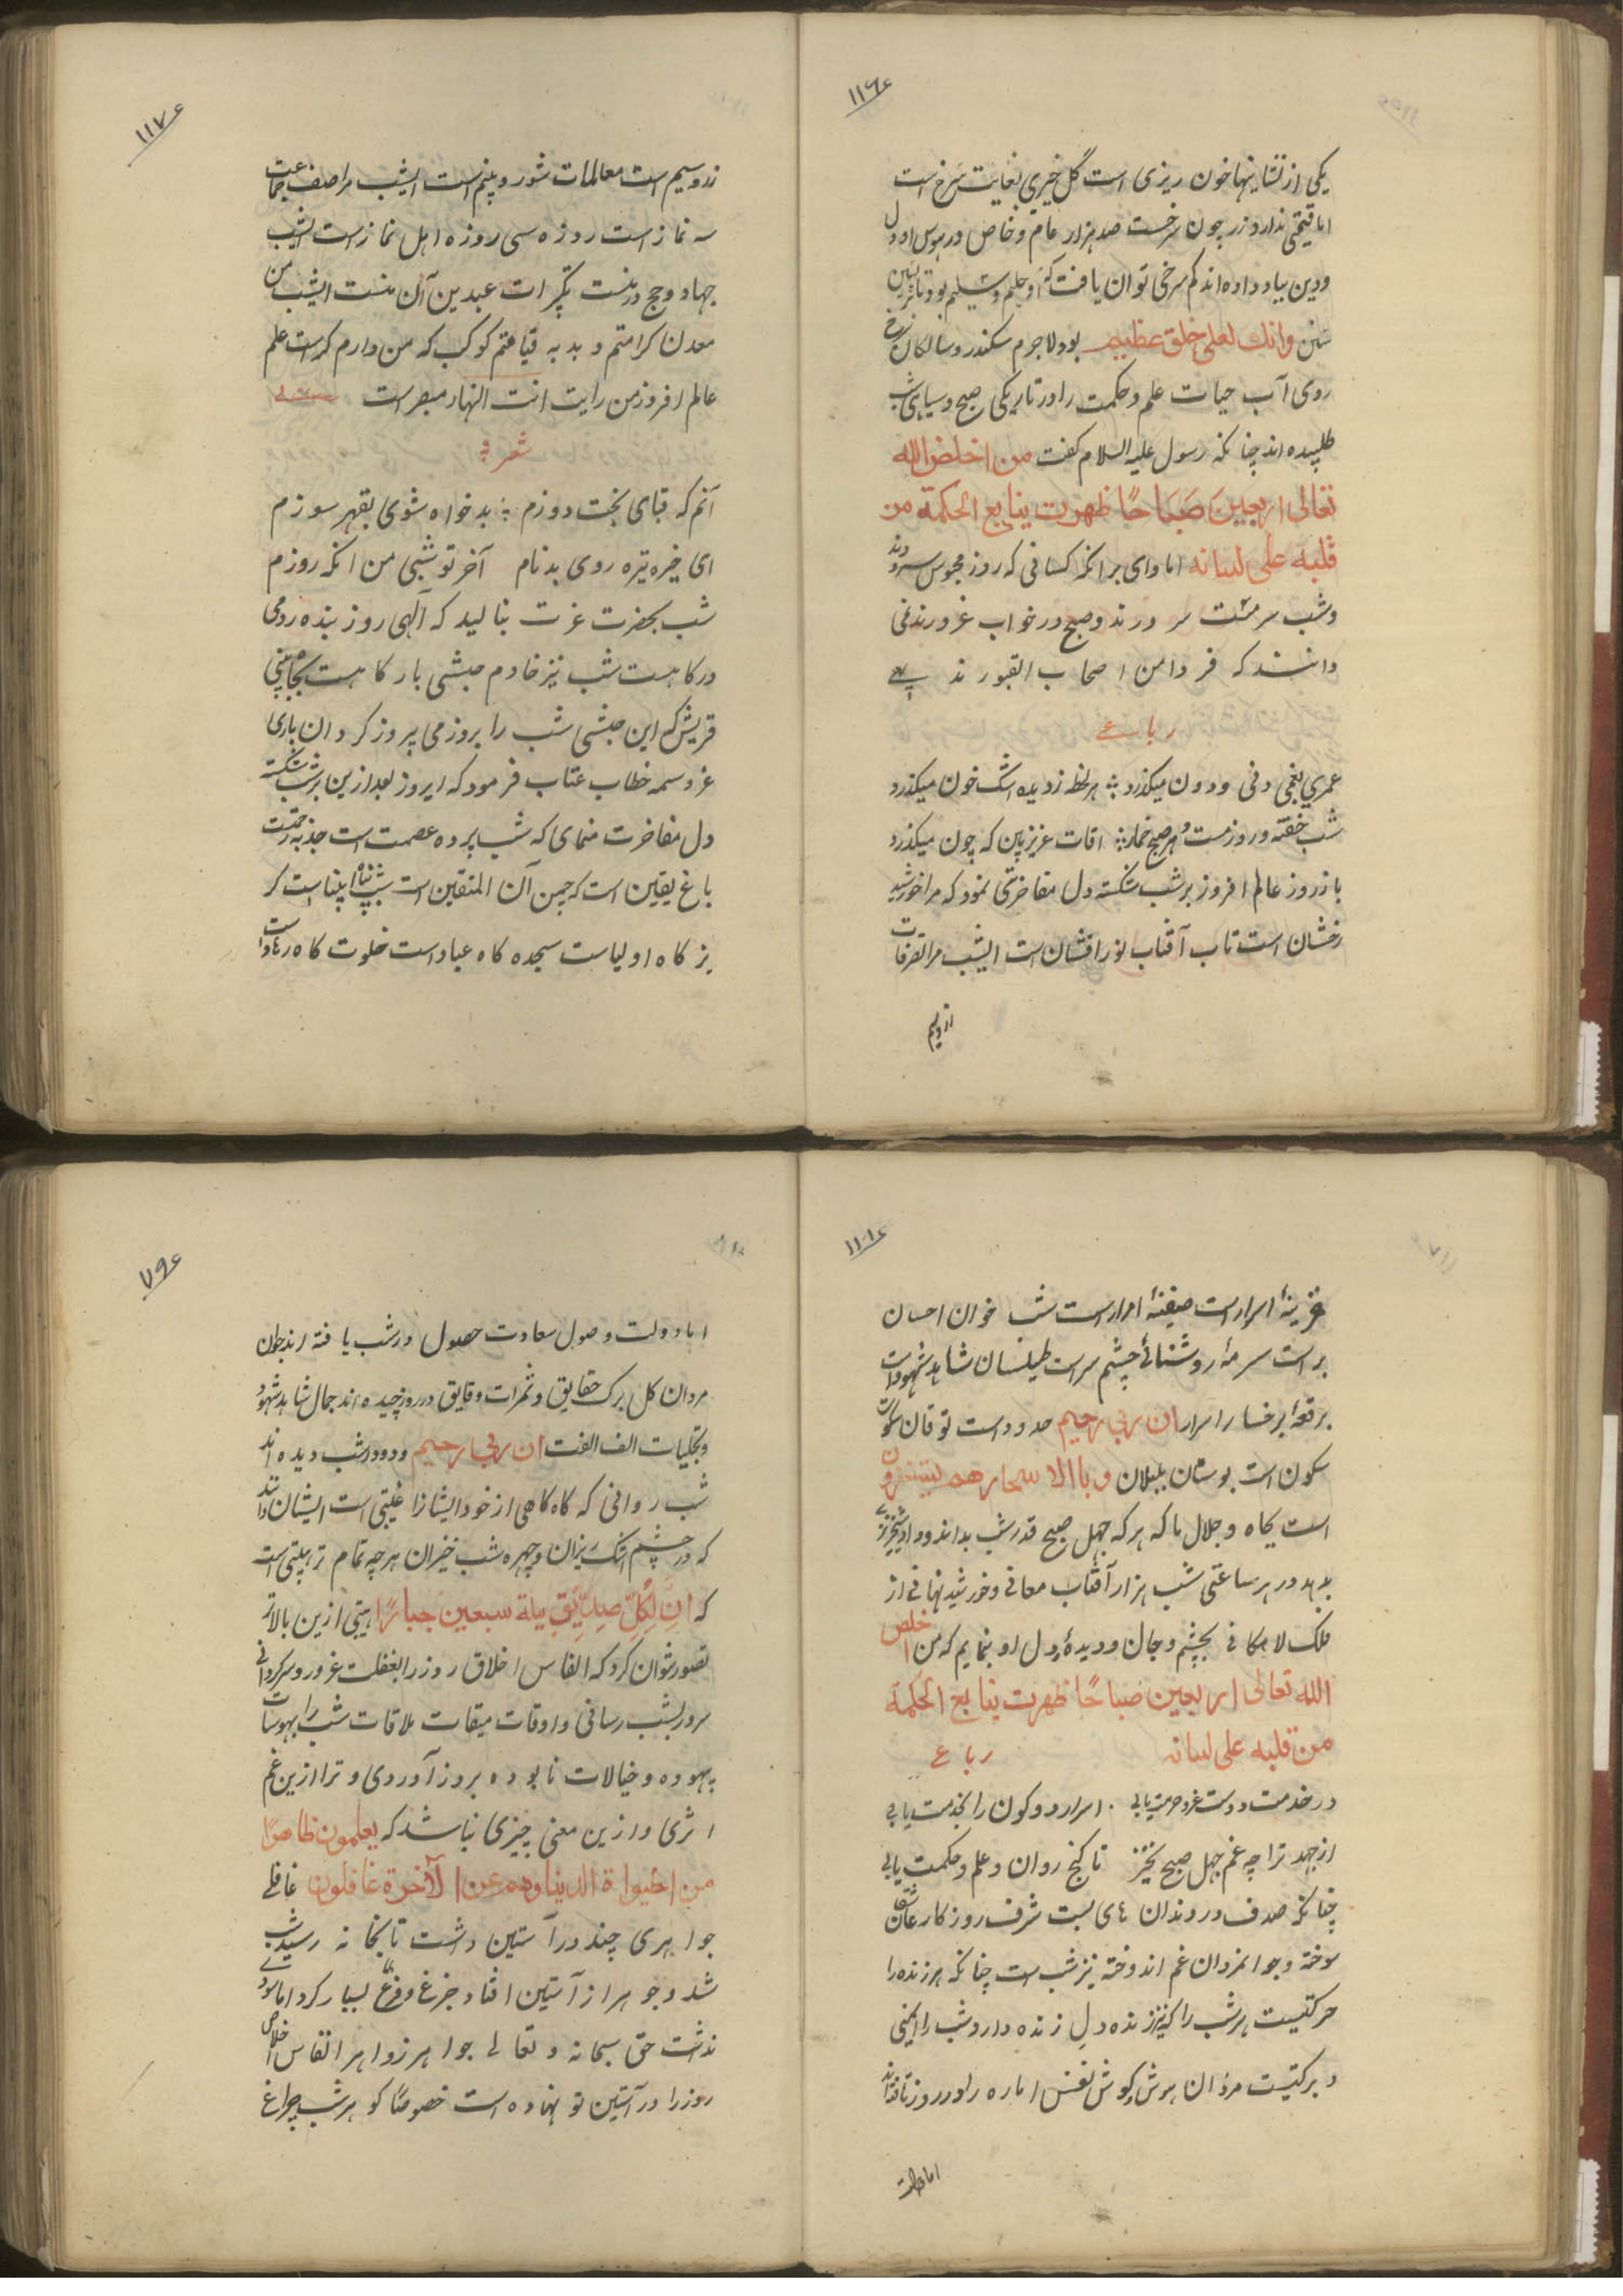 ۱۱۶
یکی از نشانیها خون ریزی است گل خیری بغایت سرخ است
اما قیمتی ندارد زر چون سرخست صد هزار عام و خاص در هوس او دل
و دین بباد داده اند کم سرخی توان یافت که او حلیم و سلیم بود
وانك لعلی خلق عظیم بود لاجرم سکندر و سالکان
روی آب حیات علم و حکمت را در تاریکی صبح و سیاهی شب
طلبیده اند چنانکه رسول علیه السلام گفت من اخلص الله
تعالی اربعین صَبَاحًا ظهرت ینابیع الحکمة من
قلبه علی لسانه اما وای بر آنکه کسانی که روز محبوس
و شب سرمست سر در ند و صبح در خواب غرورند نمی
دانند که فردا من اصحاب القبورند
رباعی
عمری بغمی دنی و دون میگذرد هر لحظه ز دیده اشک خون میگذرد
شب خفته و روز مست و هر صبح خمار اقات عزیز بین که چون میگذرد
باز روز عالم افروز بر شب شکسته دل مفاخرتی نمود که مرا خورشید
رخشان است تاب آفتاب نور افشان است ایشب مرا تصرفات
از و سیم
۱۱۷
زر و سیم است معاملات شور و بیم است ایشب مرا صف جماعت
سه نماز است روزه سی روزه اهل نماز است ایشب
جهاد و حج در منست تکبیرات عیدین آن منست ایشب من
معدن کرامتم و بد به قیامتم کوکب که من دارم کراست علم
عالم افروز من رایت انت النهار مبصر است
شعر
آنم که قبای بخت دوزم بدخواه شوی بقهر سوزم
ای خیره تیره روی بدنام آخر تو شبی من آنکه روزم
شب بحضرت عزت بنالید که الهی روز بنده رومی
درکاهست شب نیز خادم حبشی بارکاهست
قریش که این حبشی شب را بروز می پیروز کردان باری
عز و سمه خطاب عتاب فرمود که ای روز بعد ازین بر شب شکسته
دل مفاخرت منمای که شب پرده عصمت است جذبه رحمت
باغ یقین است که چمن آن المتقین است شب
یز کاه اولیاست سجده کاه عباد است خلوت کاه
۱۱۸
خزینهٔ اسرار است صیقنهٔ احرار است شب خوان احسان
بر است سرمهٔ روشنائی چشم سر است طیلسان شاهد شهود است
برقعهٔ برخسار اسرار ان ربی رحیم ودود است توقان سکون
سکون است بوستان بلبلان وباالاسحار هم یستغفرون
است بجاه و جلال ما که هر که چهل صبح قدر شب بداند و داد شبخیزی
بدهد در هر ساعتی شب هزار آفتاب معانی و خورشید نهانی از
فلک لامکانی بچشم و جان و دیدهٔ دل او بنمایم که من اخلص
الله تعالی اربعین صباحًا ظهرت ینابیع الحکمة
من قلبه علی لسانه رباعی
در خدمت دوست عز و حرمت یابی اسرار دو کون را بخدمت یابی
از جهد ترا چه غم چهل صبح بخیز تا کنج روان و علم و حکمت یابی
چنانکه صدف در دندان های بست شرف روزکار عاشقان
سوخته و جوانمردان غم اندوخته نیز شب است چنانکه هر زنده را
حرکتیست هر شب را که نیز زنده دلِ زنده دارد شب را یمنی
و برکتیست مردان هوش کوش نفس اماره را در روز تافته اند
اما دولت
۷۹
اما دولت وصول سعادت حصول در شب یافته اند جوان
مردان کل برک حقایق و ثمرات دقایق در روز چیده اند جمال شاهد شهود
و تجلیات الف الفت ان ربی رحیم ودود در شب دیده اند
شب روانی که کاه کاهی از خود ایشانرا غیبتی است ایشان دانند
که در چشم اشک ریزان و چهره شب خیزان هر چه تمام تر هیبتی است
که انَّ لِکُلِّ صِدِّیْقٍ سبعین جبارًا هیبتی ازین بالاتر
تصور نتوان کرد که انفاس اخلاق روز را بغفلت غرور و سرکردانی
سرور بشب رسانی و اوقات میقات ملاقات شب را بهوسات
بیهوده و خیالات نابوده بروز آوردی و ترا ازین غم
اثری و ازین معنی چیزی نباشد که یعلمون ظاهرًا
من الحیواة الدنیا وهم عن الآخرة غافلون غافلی
جواهری چند در آستین داشت تا بخانه رسید شب
شد و جوهر از آستین افتاد جزع و فزع بسیار کرد اما سودی
نداشت حق سبحانه و تعالی جواهر زواهر انفاس اخلاص
روز را در آستین تو نهاده است خصوصًا کو هر شب چراغ